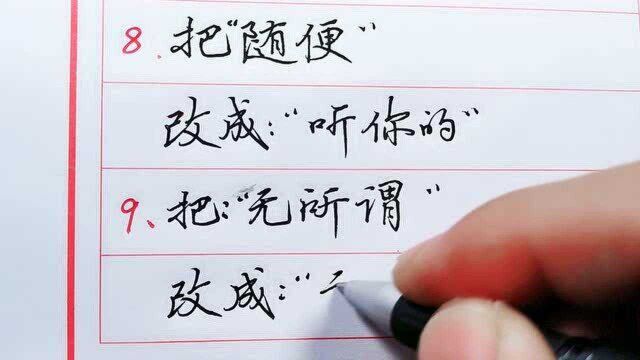 8、把“随便”
改成:“听你的”
9、把:“无所谓”
改成:“